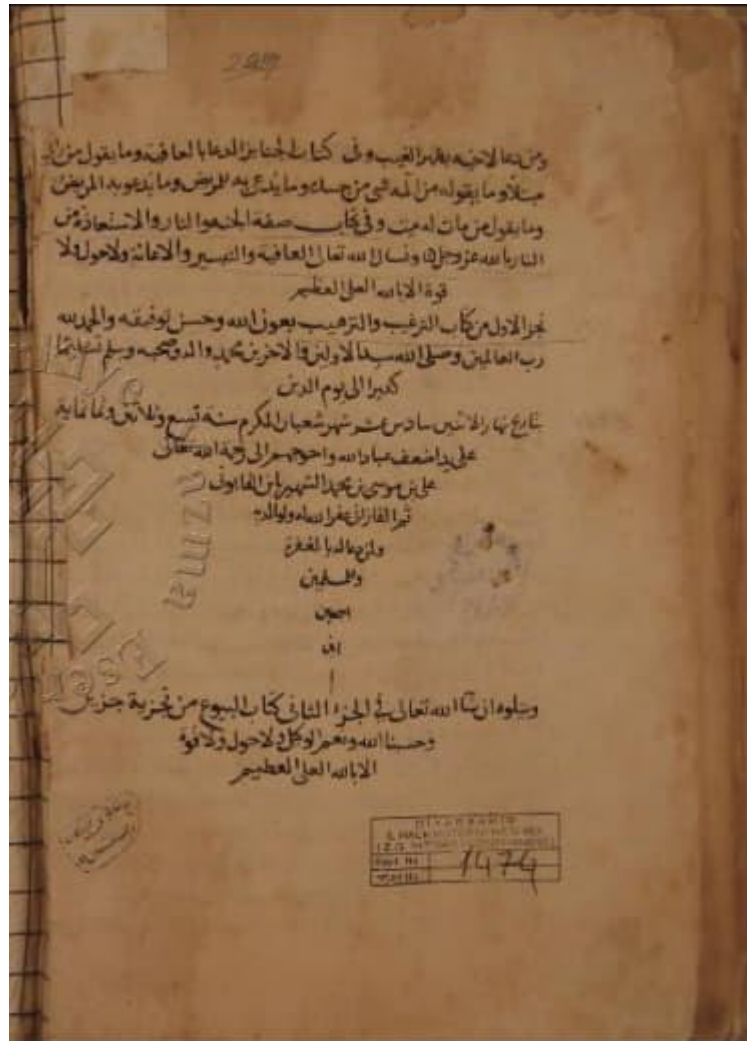 2949
ومن دعا لاخيه بظهر الغيب وفى كتاب الجنائز الدعا بالعافيه وما يقول من راى
مبتلا وما يقوله من المه شى من جسده وما يدعى به للمريض وما يدعو به المريض
وما يقول من مات له ميت وفى كتاب صفه الجنه والنار والاستعاذة من
النار بالله عز وجل ونسال الله تعالى العافية والتيسير والاعانة ولا حول ولا
قوة الا بالله العلى العظيم
نجز الاول من كتاب الترغيب والترهيب بعون الله وحسن توفيقه والحمد لله
رب العالمين وصلى الله سيدنا الاولين والاخرين محمد واله وصحبه وسلم تسليما
كثيرا الى يوم الدين
بتاريخ نهار الاثنين سادس عشر شهر شعبان المكرم سنة تسع وثلاثين وثمانماية
على يد اضعف عباد الله واحوجهم الى رحمة الله تعالى
على بن موسى بن محمد الشهير بابن القابونى
غفر الله له ولوالديه
ولمن دعا له بالمغفرة
وللمسلمين
اجمعين
امين
ويتلوه ان شا الله تعالى فى الجزء الثانى كتاب البيوع من تجزية جزين
وحسبنا الله ونعم الوكيل ولا حول ولا قوة
الا بالله العلى العظيم
DIYARBAKIR
1474